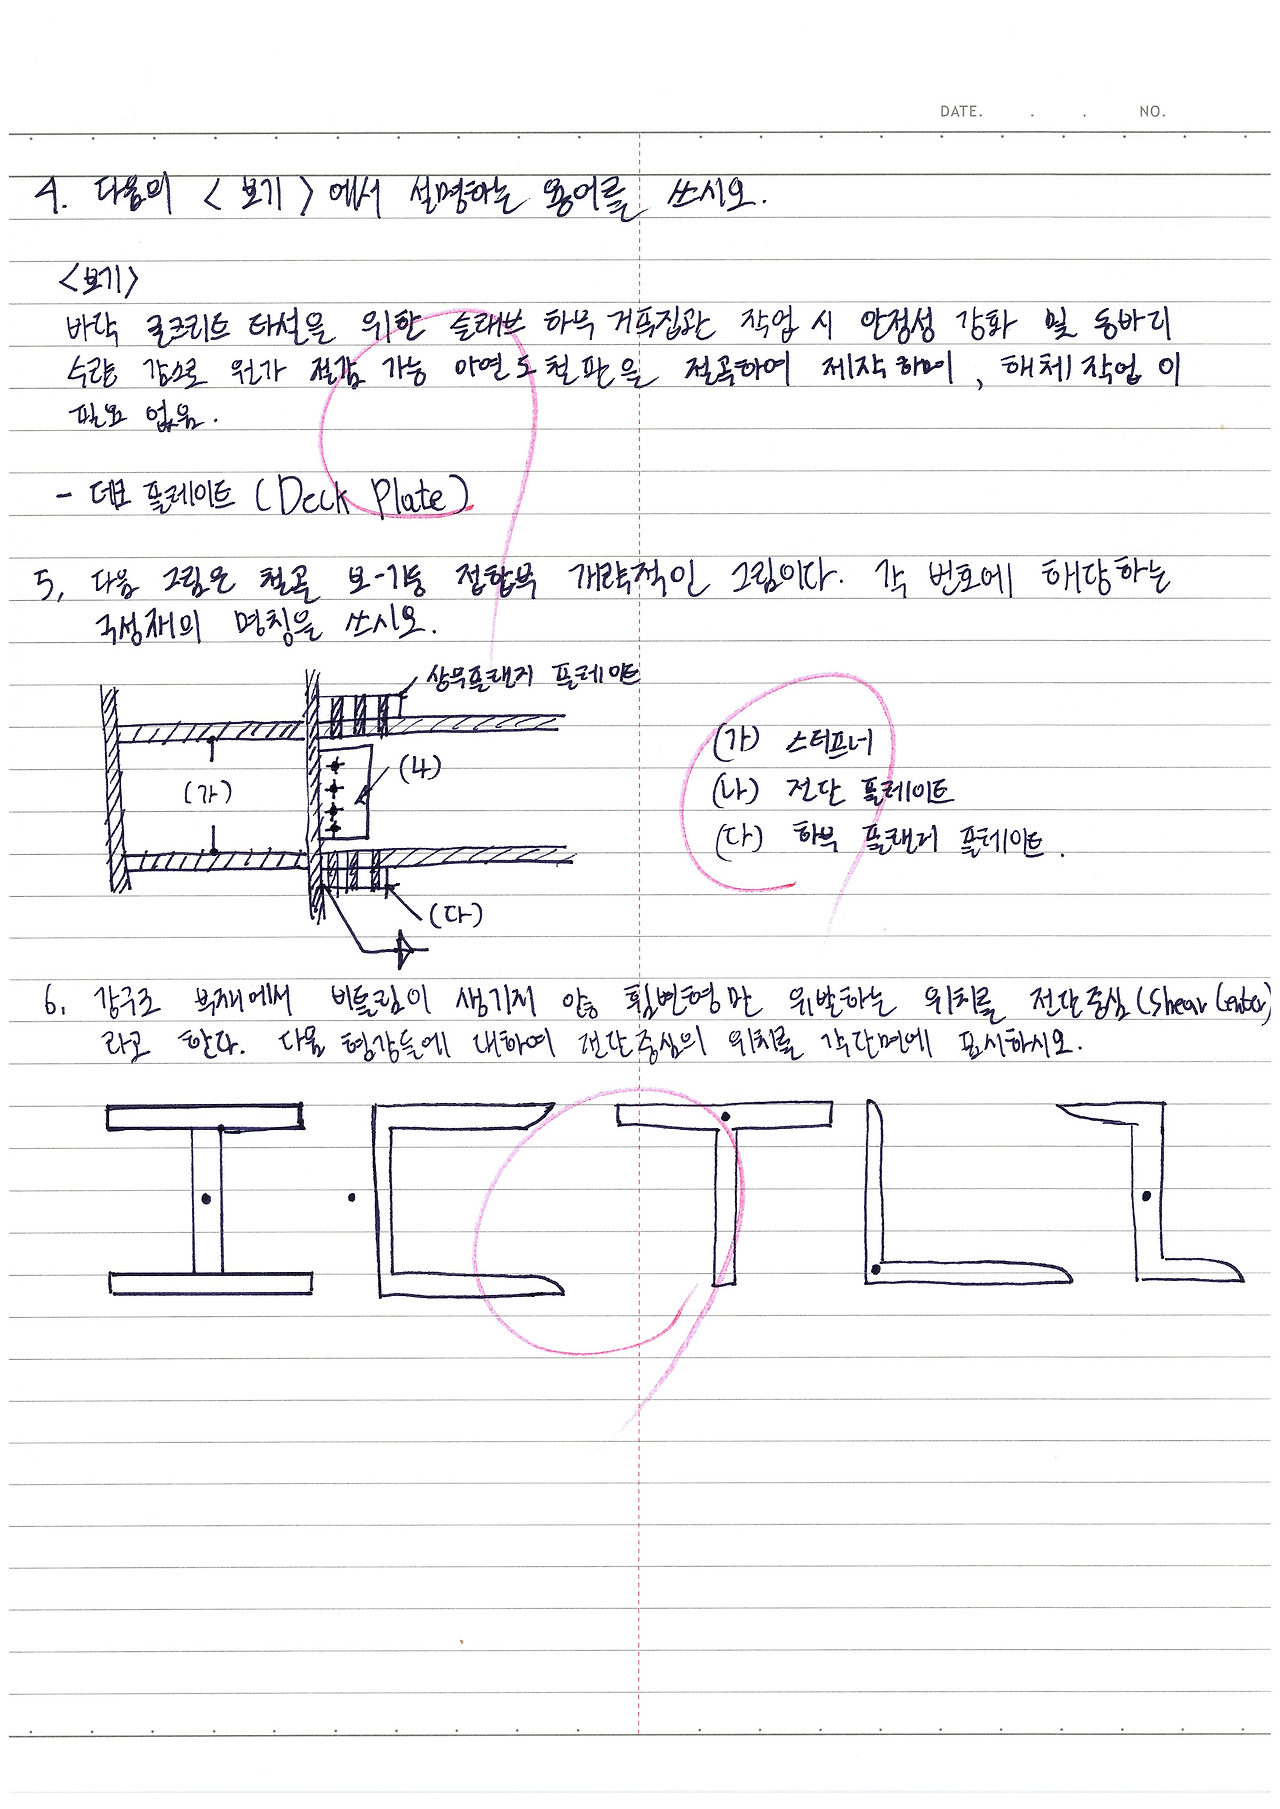 DATE. . . NO.
4. 다음의 <보기>에서 설명하는 용어를 쓰시오.
<보기>
바닥 콘크리트 타설을 위한 슬래브 하부 거푸집판 작업 시 안정성 강화 및 동바리
수량 감소로 원가 절감 가능 아연도철판을 절곡하여 제작하며, 해체작업이
필요 없음.
- 데크 플레이트 (Deck Plate)
5. 다음 그림은 철골 보-기둥 접합부 개략적인 그림이다. 각 번호에 해당하는
구성재의 명칭을 쓰시오.
상부플랜지 플레이트
(가)
(나)
(다)
(가) 스티프너
(나) 전단 플레이트
(다) 하부 플랜지 플레이트.
6. 강구조 부재에서 비틀림이 생기지 않승 휨변형만 유발하는 위치를 전단중심(Shear Center)
라고 한다. 다음 형강들에 대하여 전단중심의 위치를 각단면에 표시하시오.